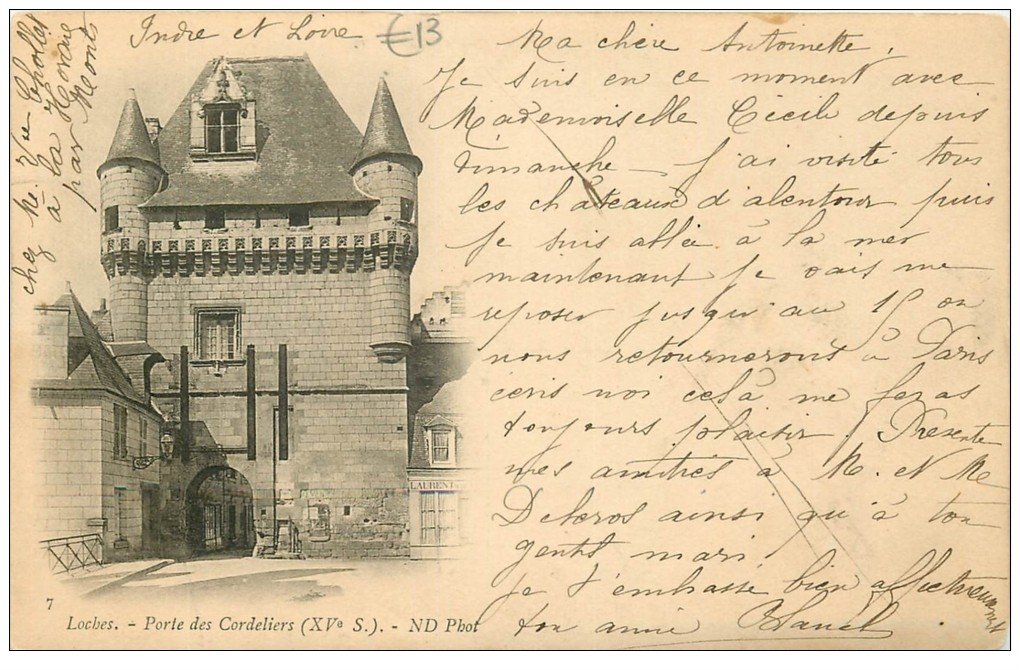 Indre et Loire €13
chez Me Vve Cholles
à la Rovaie
par Monts
Ma chère Antoinette,
Je suis en ce moment avec
Mademoiselle Cécile depuis
dimanche - j'ai visité tous
les châteaux d'alentour puis
je suis allée à la mer
maintenant je vais me
reposer jusqu'au 15 on
nous retournerons à Paris
écris moi celà me feras
toujours plaisir. Présente
mes amitiés à M. et Me
ainsi qu'à ton
gentil mari
Je t'embrasse bien affectueusement
ton amie Blanch
LAURENT
7
Loches. - Porte des Cordeliers (XVe S.). - ND Phot